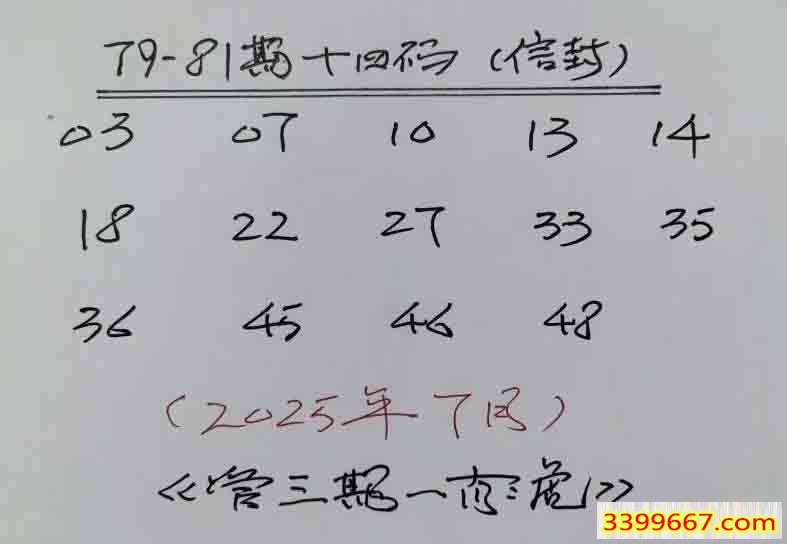 79-81期十四码(信封)
03 07 10 13 14
18 22 27 33 35
36 45 46 48
(2025年7月)
《管三期一肖三尾》
3399667.com